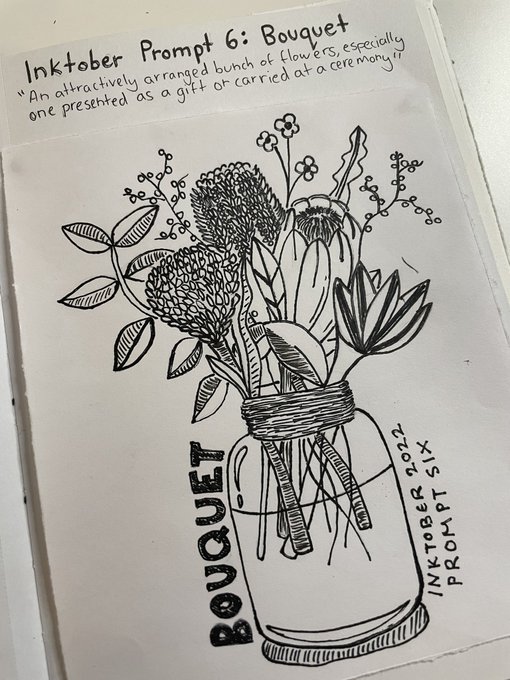 Inktober Prompt 6: Bouquet
"An attractively arranged bunch of flowers, especially
one presented as a gift or carried at a ceremony"
BOUQUET
INKTOBER 2022
PROMPT SIX